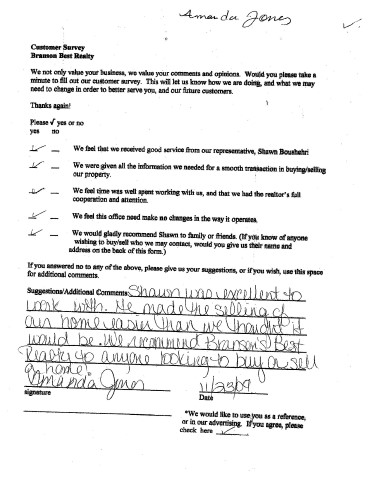 Amanda Jones ✓
Customer Survey
Branson Best Realty
We not only value your business, we value your comments and opinions. Would you please take a
minute to fill out our customer survey. This will let us know how we are doing, and what we may
need to change in order to better serve you, and our future customers.
Thanks again!
Please √ yes or no
yes no
✓ __ We feel that we received good service from our representative, Shawn Boushehri
✓ __ We were given all the information we needed for a smooth transaction in buying/selling
our property.
✓ __ We feel time was well spent working with us, and that we had the realtor's full
cooperation and attention.
✓ __ We feel this office need make no changes in the way it operates.
✓ __ We would gladly recommend Shawn to family or friends. (If you know of anyone
wishing to buy/sell who we may contact, would you give us their name and
address on the back of this form.)
If you answered no to any of the above, please give us your suggestions, or if you wish, use this space
for additional comments.
Suggestions/Additional Comments: Shawn was excellent to
work with. He made the selling of
our home easier than we thought it
would be. We recommend Branson's Best
Realty to anyone looking to buy or sell
a home.
Amanda Jones 11/23/09
signature Date
*We would like to use you as a reference,
or in our advertising. If you agree, please
check here ✓